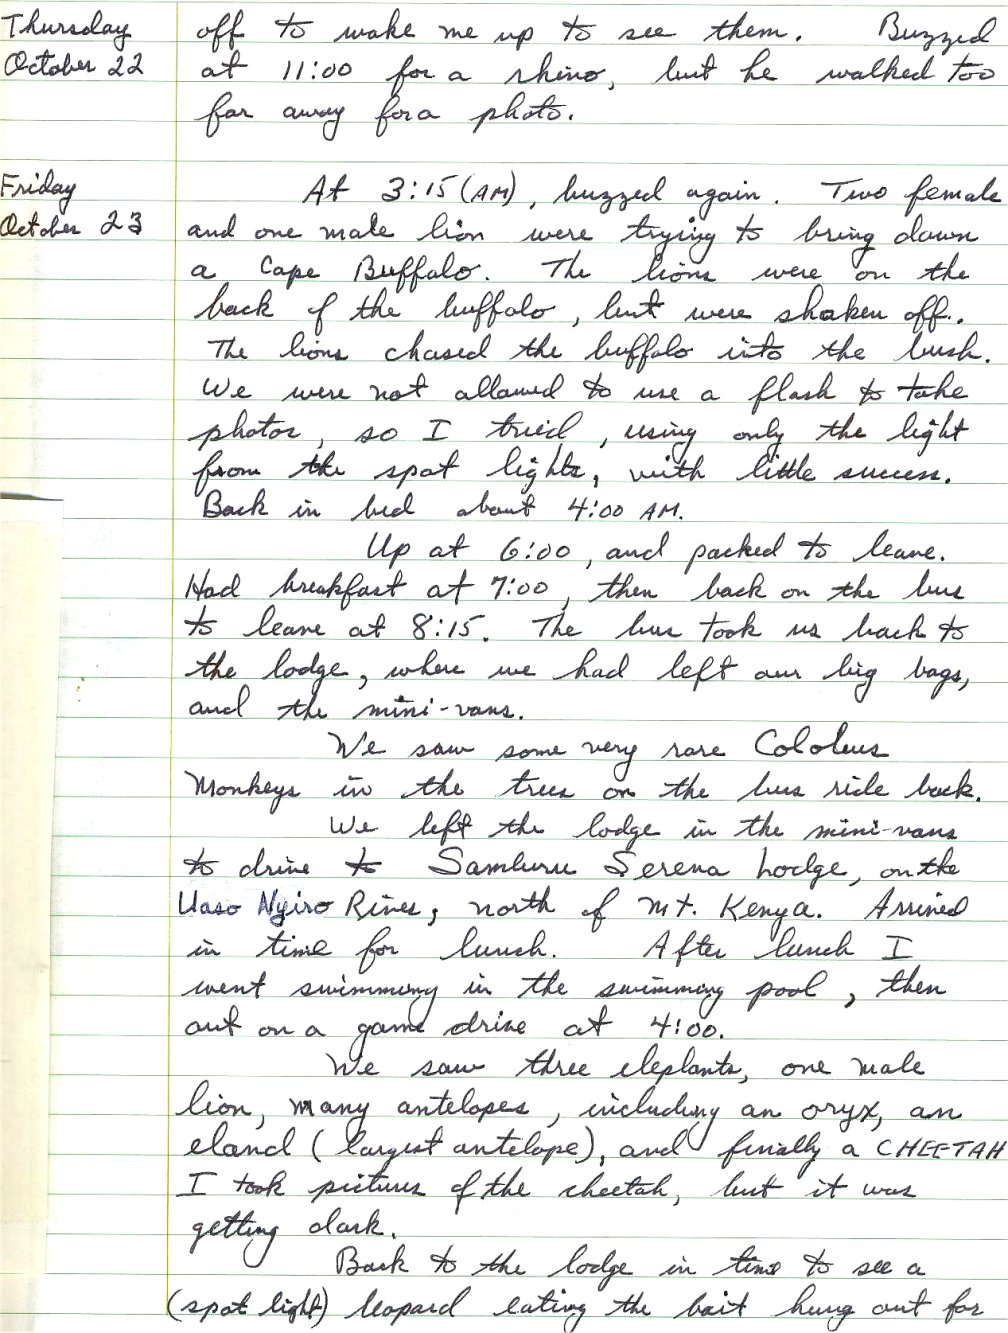 Thursday off to wake me up to see them. Buzzed
October 22 at 11:00 for a rhino, but he walked too
far away for a photo.
Friday At 3:15 (AM), buzzed again. Two female
October 23 and one male lion were trying to bring down
a Cape Buffalo. The lions were on the
back of the buffalo, but were shaken off.
The lions chased the buffalo into the bush.
We were not allowed to use a flash to take
photos, so I tried, using only the light
from the spot lights, with little success.
Back in bed about 4:00 AM.
Up at 6:00, and packed to leave.
Had breakfast at 7:00, then back on the bus
to leave at 8:15. The bus took us back to
the lodge, where we had left our big bags,
and the mini-vans.
We saw some very rare Colobus
Monkeys in the trees on the bus ride back.
We left the lodge in the mini-vans
to drive to Samburu Serena Lodge, on the
Uaso Nyiro River, north of Mt. Kenya. Arrived
in time for lunch. After lunch I
went swimming in the swimming pool, then
out on a game drive at 4:00.
We saw three elephants, one male
lion, many antelopes, including an oryx, an
eland (largest antelope), and finally a CHEETAH
I took pictures of the cheetah, but it was
getting dark.
Back to the lodge in time to see a
(spot light) leopard eating the bait hung out for